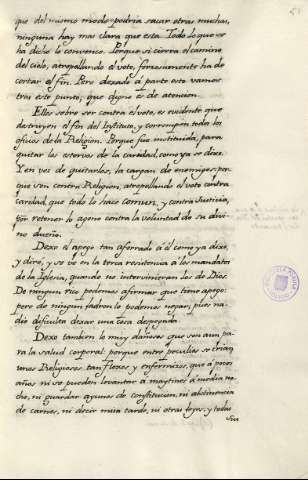 que del mismo modo podria sacar otras muchas,
ninguna hay mas clara que esta. Todo lo que se
ha dicho lo convence. Porque si cierra el camino
del cielo, atropellando el voto, forzosamente ha de
cortar el fin. Pero dexado á parte esto vamos
tras este punto, que digno es de atencion.
Ellos sobre ser contra el voto, es evidente que
destruyen el fin del Instituto, y corrompen todos los
oficios de la Religion. Porque fue instituida, para
quitar los estorvos de la caridad, como ya se dixo.
Y en vez de quitarlos, la cargan de enemigos, por
que son contra Religion, atropellando el voto contra
caridad, que todo lo hace comun, y contra Justicia,
por retener lo ageno contra la voluntad de su divi-
no dueño.
Dexo el apego tan aforrado á él como ya dixe,
y diré, y se vé en la terca resistencia á los mandatos
de la Iglesia, quando no intervinieran los de Dios.
De ningun rico podemos afirmar que tiene apego:
pero de ningun ladron lo podemos negar, pues na-
die dificulta dexar una cosa despegada.
Dexo tambien lo muy dañosos que son aun pa-
ra la salud corporal: porque entre peculios se crian
unos Religiosos tan floxos y enfermizos, que á pocos
años ni se pueden levantar á maytines á media no-
che, ni guardar ayunos de constitucion, ni abstinencia
de carnes, ni decir misa tarde, ni otras leyes, y todas